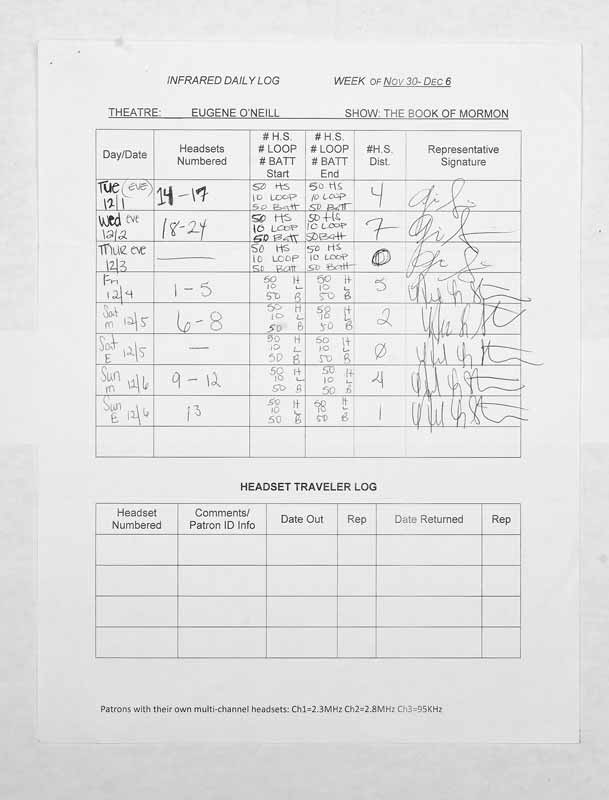 INFRARED DAILY LOG WEEK OF NOV 30- DEC 6
THEATRE: EUGENE O'NEILL SHOW: THE BOOK OF MORMON
Day/Date
Headsets
Numbered
# H.S.
# LOOP
# BATT
Start
# H.S.
# LOOP
# BATT
End
#H.S.
Dist.
Representative
Signature
Tue (EVE)
12/1
14-17
50 HS
10 LOOP
50 Batt
50 HS
10 LOOP
50 Batt
4
Wed eve
12/2
18-24
50 HS
10 LOOP
50 BATT
50 HS
10 LOOP
50 Batt
7
THUR eve
12/3
—
50 HS
10 LOOP
50 Batt
50 HS
10 LOOP
50 BATT
0
Fri
12/4
1-5
50 H
10 L
50 B
50 H
10 L
50 B
5
Sat
m 12/5
6-8
50 H
10 L
50 B
50 H
10 L
50 B
2
Sat
E 12/5
—
50 H
10 L
50 B
50 H
10 L
50 B
0
Sun
m 12/6
9-12
50 H
10 L
50 B
50 H
10 L
50 B
4
Sun
E 12/6
13
50 H
10 L
50 B
50 H
10 L
50 B
1
HEADSET TRAVELER LOG
Headset
Numbered
Comments/
Patron ID Info
Date Out
Rep
Date Returned
Rep
Patrons with their own multi-channel headsets: Ch1=2.3MHz Ch2=2.8MHz Ch3=95KHz